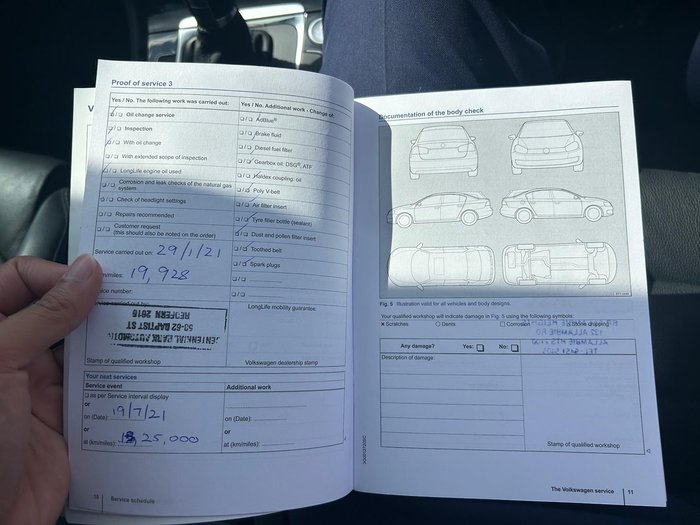 Proof of service 3
Yes / No. The following work was carried out:
Oil change service
Inspection
With oil change
With extended scope of inspection
LongLife engine oil used
Corrosion and leak checks of the natural gas
system
Check of headlight settings
Repairs recommended
Customer request
(this should also be noted on the order)
Service carried out on: 29/1/21
km/miles: 19,928
number:
CENTENNIAL PARK AUTOMOTIVE
53-62 BAPTIST ST
REDFERN 2016
Stamp of qualified workshop
Your next services
Service event
as per Service interval display
or
on (Date): 19/7/21
or
at (km/miles): 25,000
10 Service schedule
Yes / No. Additional work - Change of:
AdBlue®
Brake fluid
Diesel fuel filter
Gearbox oil: DSG®, ATF
Haldex coupling: oil
Poly V-belt
Air filter insert
Tyre filler bottle (sealant)
Dust and pollen filter insert
Toothed belt
Spark plugs
LongLife mobility guarantee:
Volkswagen dealership stamp
Additional work
or
on (Date):
or
at (km/miles):
Documentation of the body check
Fig. 5 Illustration valid for all vehicles and body designs.
Your qualified workshop will indicate damage in Fig. 5 using the following symbols:
X Scratches
Dents
Corrosion
Stone chipping
Any damage? Yes: No:
Description of damage:
Stamp of qualified workshop
The Volkswagen service 11